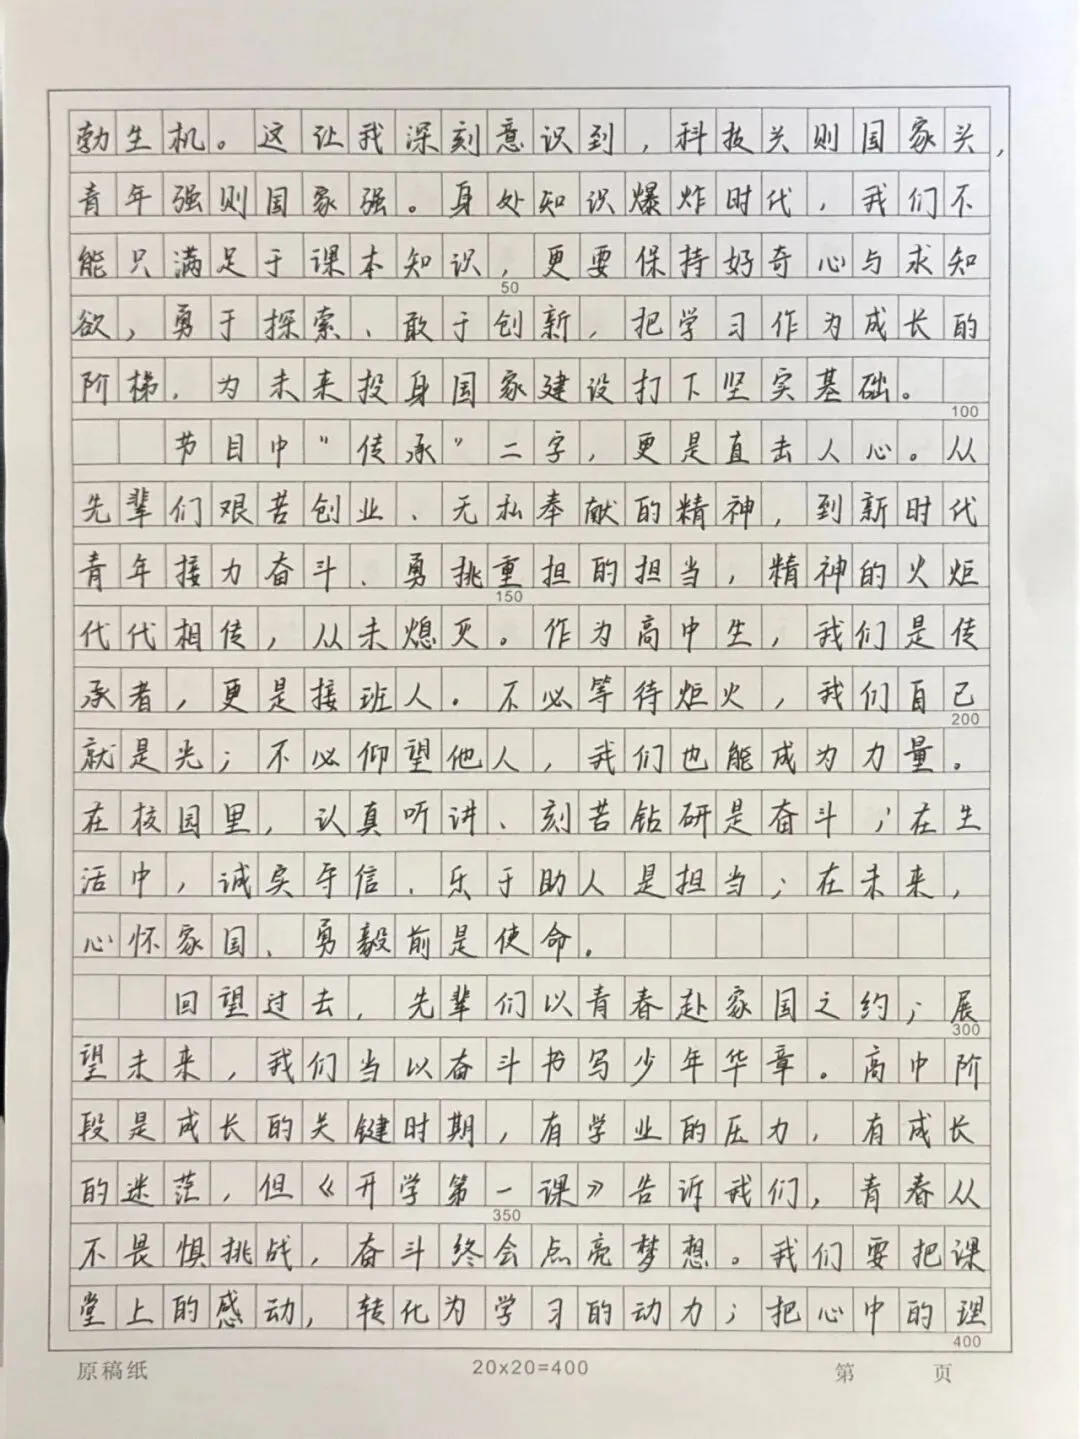 勃生机。这让我深刻意识到，科技兴则国家兴，
青年强则国家强。身处知识爆炸时代，我们不
能只满足于课本知识，更要保持好奇心与求知
50
欲，勇于探索、敢于创新，把学习作为成长的
阶梯，为未来投身国家建设打下坚实基础。
100
节目中“传承”二字，更是直击人心。从
先辈们艰苦创业、无私奉献的精神，到新时代
青年接力奋斗、勇挑重担的担当，精神的火炬
150
代代相传，从未熄灭。作为高中生，我们是传
承者，更是接班人。不必等待炬火，我们自己
200
就是光；不必仰望他人，我们也能成为力量。
在校园里，认真听讲、刻苦钻研是奋斗；在生
活中，诚实守信、乐于助人是担当；在未来，
心怀家国、勇毅前是使命。
回望过去，先辈们以青春赴家国之约；展
300
望未来，我们当以奋斗书写少年华章。高中阶
段是成长的关键时期，有学业的压力，有成长
的迷茫，但《开学第一课》告诉我们，青春从
350
不畏惧挑战，奋斗终会点亮梦想。我们要把课
堂上的感动，转化为学习的动力；把心中的理
400
原稿纸 20x20=400 第 页